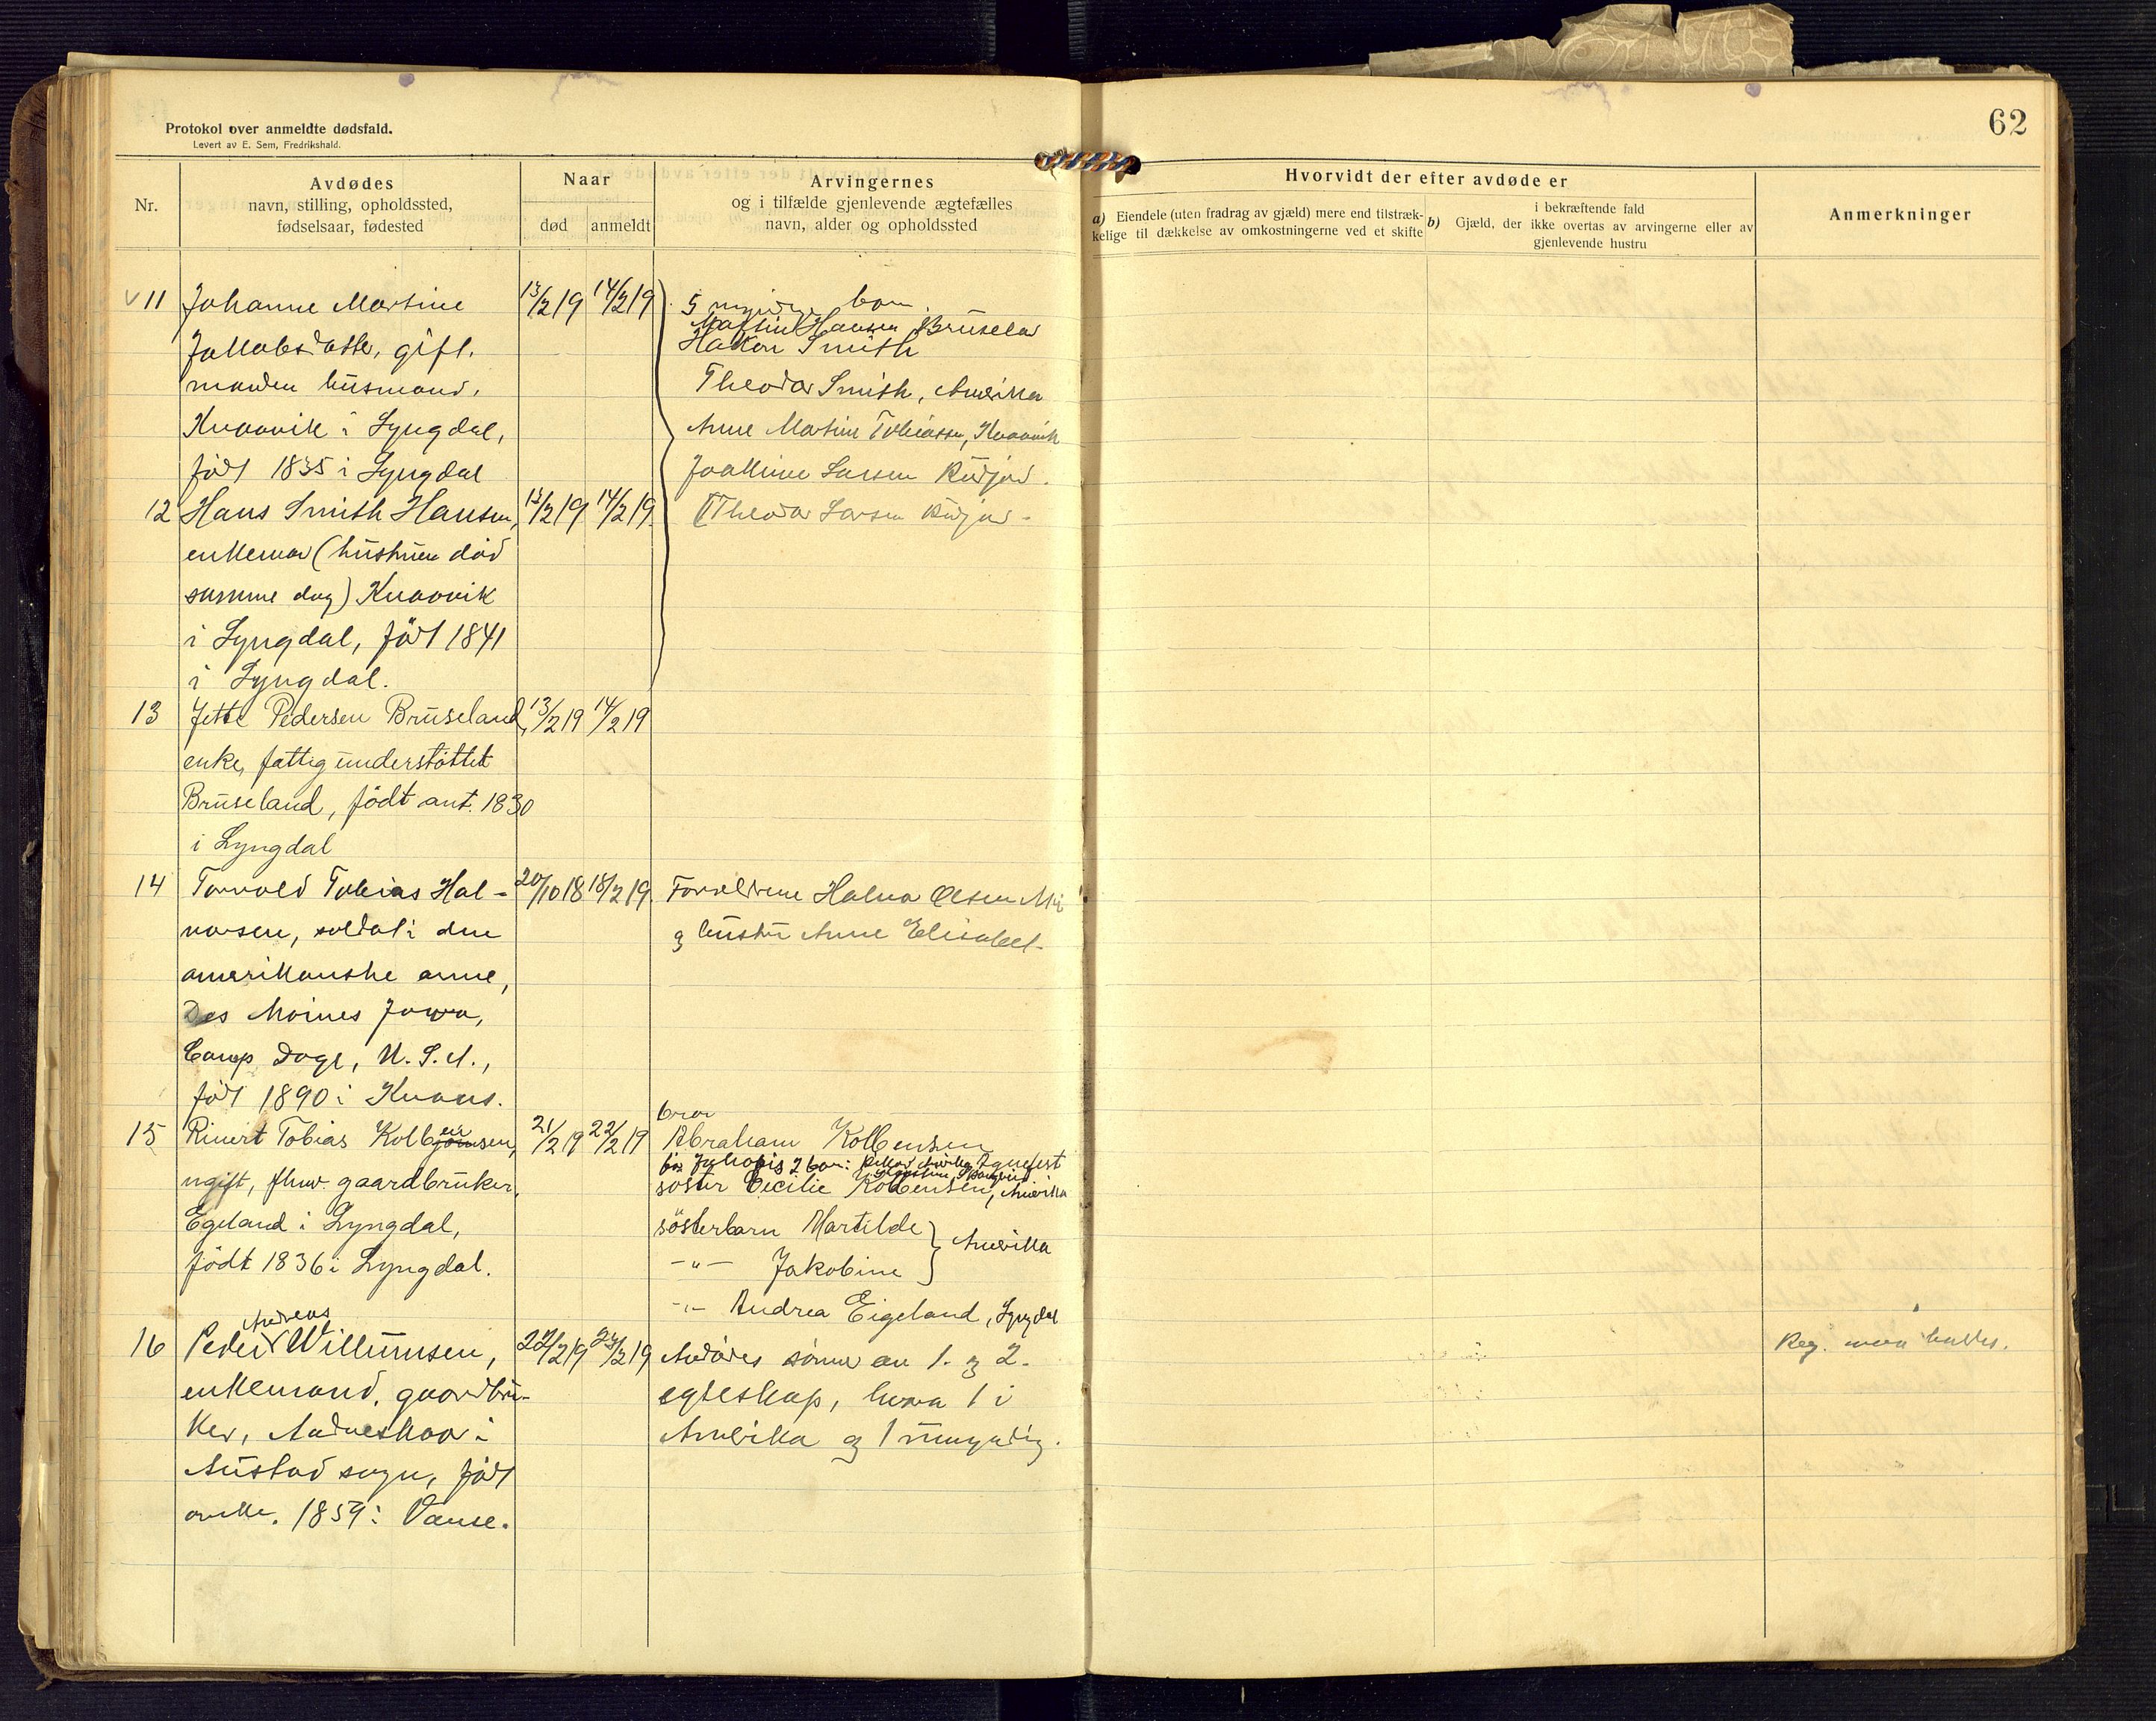 Protokol over anmeldte dødsfald.
Levert av E. Sem, Fredrikshald.
62
Nr.
Avdødes
navn, stilling, opholdssted,
fødselsaar, fødested
Naar
død
anmeldt
Arvingernes
og i tilfælde gjenlevende ægtefælles
navn, alder og opholdssted
Hvorvidt der efter avdøde er
a) Eiendele (uten fradrag av gjæld) mere end tilstræk-
kelige til dækkelse av omkostningerne ved et skifte
b) Gjæld, der
i bekræftende fald
ikke overtas av arvingerne eller av
gjenlevende hustru
Anmerkninger
v 11
Johanne Martine
Jakobsdatter, gift.
manden husmand,
Kvavik i Lyngdal,
født 1835 i Lyngdal
13/2 19
14/2 19
5 myndige barn
Martin Hansen Bruseland
Hakon Smith
Theodor Smith, Amerika
Anne Martine Tobiassen, Kvavik
Joakime Larsen Rudjord.
(Theodor Larsen Rudjord-
12
Hans Smith Hansen,
enkeman (hustruen død
samme dag) Kvavik
i Lyngdal, født 1841
i Lyngdal.
13/2 19
14/2 19.
13
Jette Pedersen Bruseland,
enke, fattigunderstøttet
Bruseland, født ant. 1830
i Lyngdal
13/2 19
14/2 19
14
Torvald Tobias Hal-
varsen, soldat i den
amerikanske arme,
Des Moines Jowa,
Camp Doge, U.S.A.,
født 1890 i Kvaas.
20/10 18
18/2 19.
Forældrene Halvor Olsen Mo
og hustru Anne Elisabet-
15
Rinert Tobias Kolbjørnsen,
en
ugift, fhv. gaardbruker,
Egeland i Lyngdal,
født 1836 i Lyngdal.
21/2 19
22/2 19
bror
Abraham Kolbensen
2 barn:
søster Cecilie Kolbensen, Amerika
søsterbarn Martilde
-"- Jakobine
} Amerika
-"- Andrea Eigeland, Lyngdal
16
Andreas
Peder Willumsen,
enkemand, gaardbru-
ker, Aadneskar i
Austad sogn, født
omkr. 1859 i Vanse.
22/2 19
24/2 19
Avdødes sønner av 1. og 2.
egteskap, hvorav 1 i
Amerika og 1 umyndig.
Reg. maa holdes.